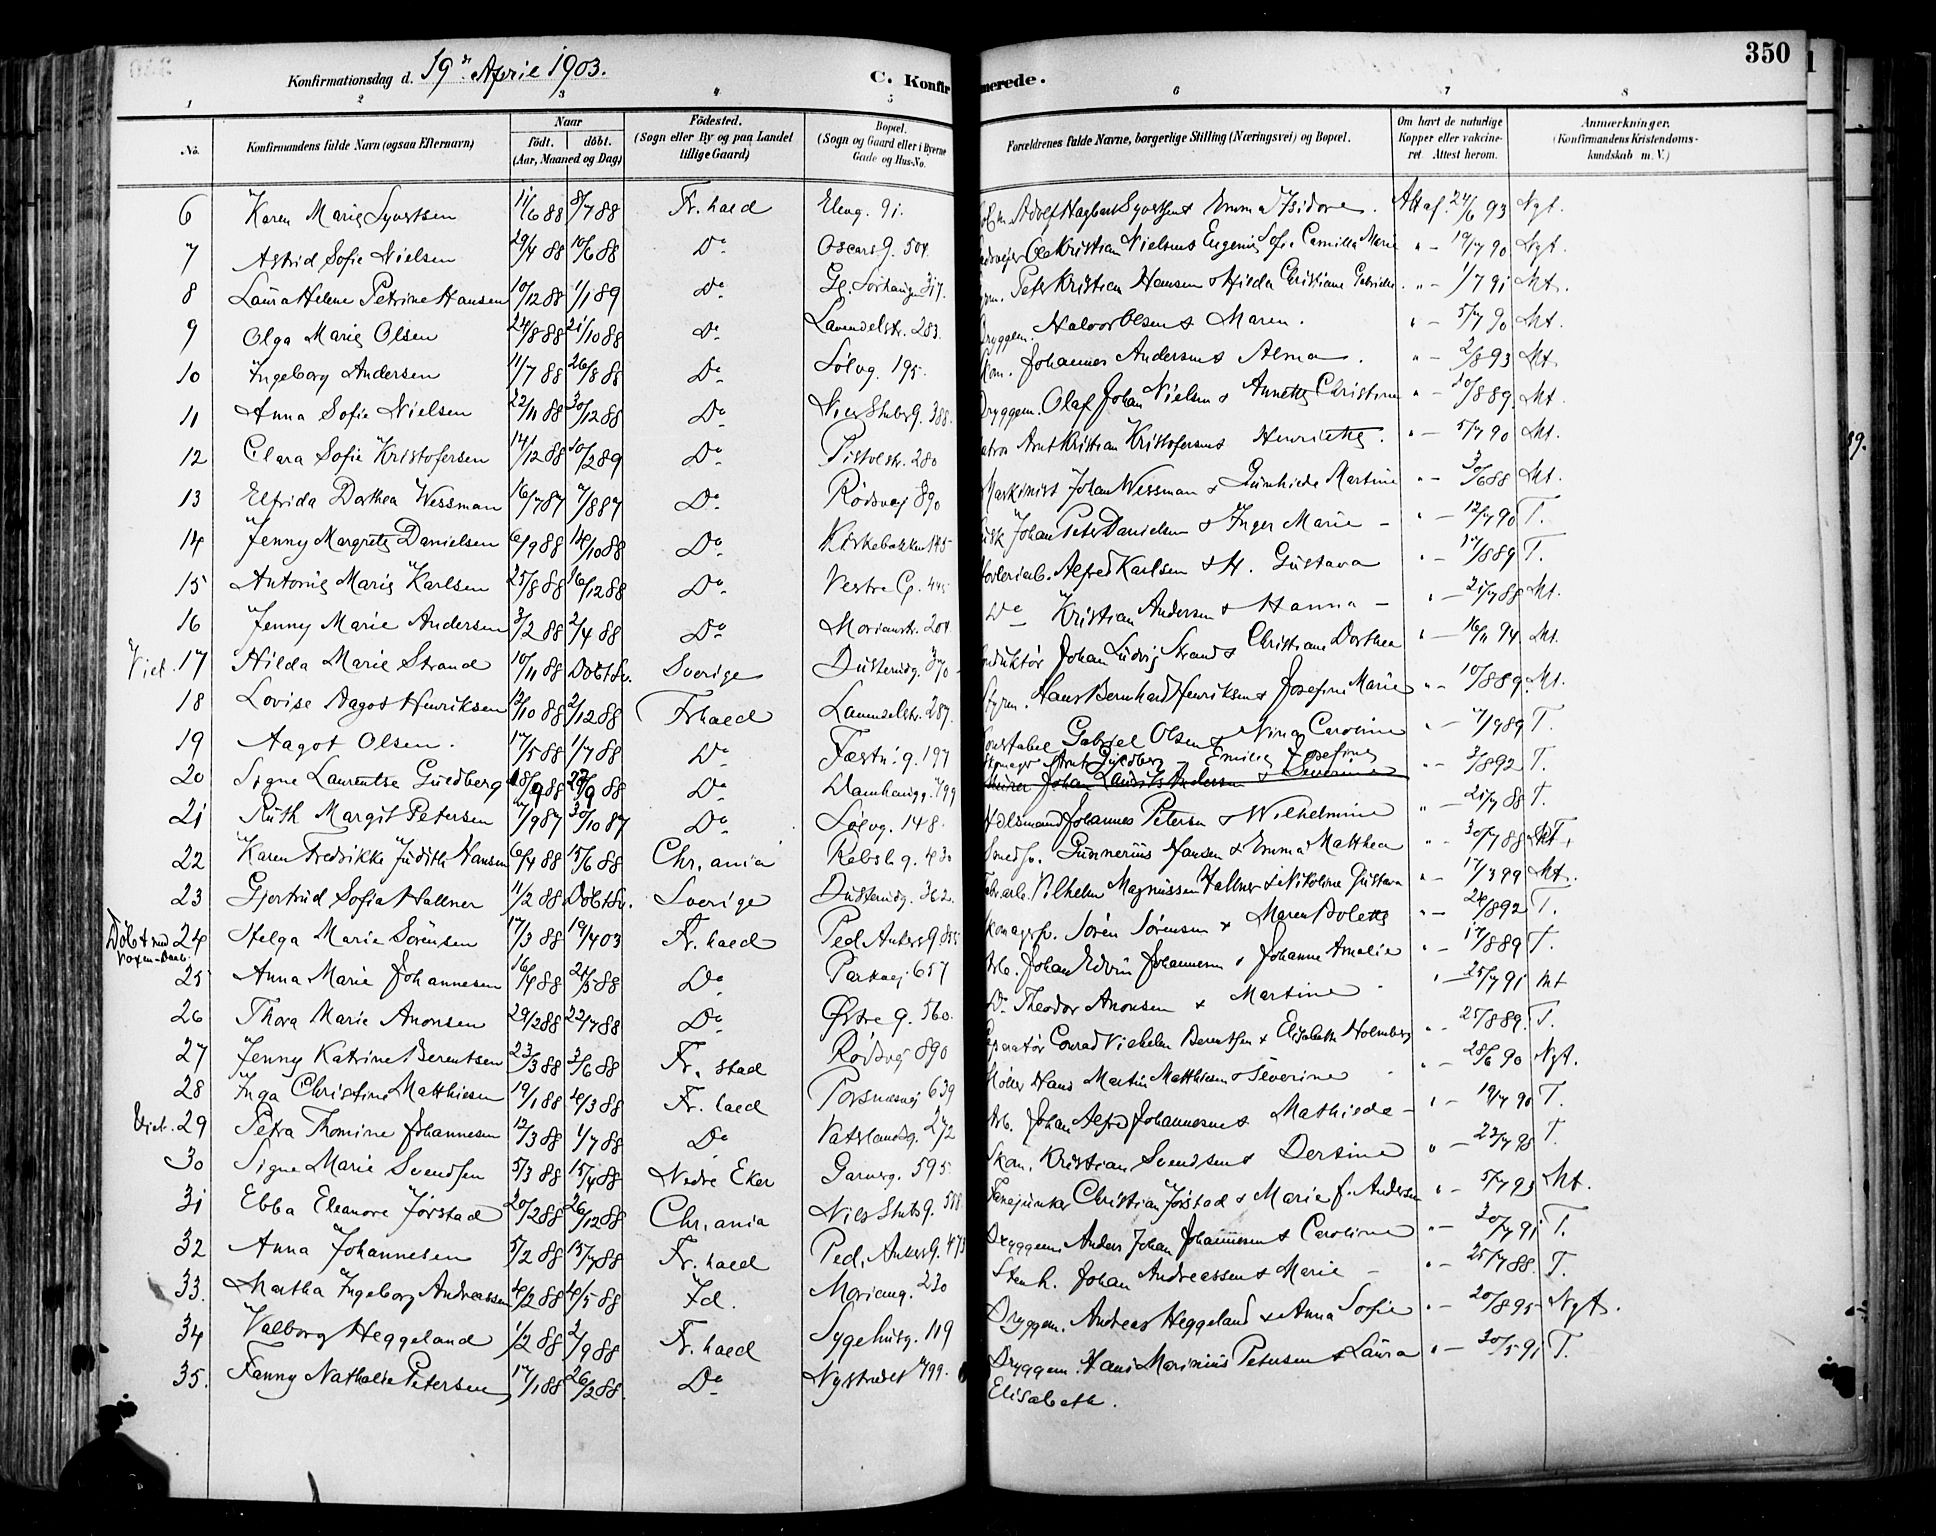 350
Konfirmationsdag d. 19de April 1903.
C. Konfirmerede.
1 2 3 4 5 6 7 8
No. Konfirmandens fulde Navn (ogsaa Efternavn) Naar födt. döbt. (Aar, Maaned og Dag) Födested. (Sogn eller By og paa Landet tillige Gaard) Bopæl. (Sogn og Gaard eller i Byerne Gade og Hus-No. Forældrenes fulde Navne, borgerlige Stilling (Næringsvei) og Bopæl. Om havt de naturlige Kopper eller vakcineret Attest herom. Anmærkninger. (Konfirmandens Kristendomskundskab m. V.)
6 Karen Marie Syvertsen 11/6 88 8/7 88 Fr.hald Elvg. 91. Adolf Hagbart Syvertsen & Emma Isidore. Att af. 24/6 93 Ngt.
7 Astrid Sofie Nielsen 29/4 88 10/6 88 Do Oscarsg. 504. Ole Kristian Nielsen & Eugenie Sofie Camilla Marie " - 19/7 90 Ngt.
8 Laura Helene Petrine Hansen 10/12 88 1/1 89 Do Gl. 317. Peter Kristian Hansen & Hilda Christiane Gabrielle. " - 1/7 91 Mt.
9 Olga Marie Olsen 24/8 88 21/10 88 Do Lavendelstr. 283. Bryggem. Halvor Olsen & Maren. " - 5/7 90 Mt.
10 Ingeborg Andersen 11/7 88 26/8 88 Do Sølvg. 195. Johannes Andersen & Alma. " - 2/8 93 Mt.
11 Anna Sofie Nielsen 22/11 88 30/12 88 Do Niels Stubs g. 388. Bryggem. Olaf Johan Nielsen & Annette Christine " - 20/8 89. Mt.
12 Clara Sofie Kristofersen 14/12 88 10/2 89 Do Pistolstr. 280 Arnt Kristian Kristofersen & Henriette. " - 5/7 90 Mt.
13 Elfrida Dorthea Wessman 16/7 87 7/8 87 Do Rødsvej 890 Maskinist Johan Wessman & Gunhilda Martine " - 30/6 88 Mt.
14 Jenny Margrete Danielsen 6/9 88 14/10 88 Do Kirkebakken 145 Johan Peter Danielsen & Inger Marie - " - 12/7 90 T.
15 Antonie Marie Karlsen 25/8 88 16/12 88 Do Vestre G. 445 Alfred Karlsen & H. Gustava " - 17/8 89 T.
16 Jenny Marie Andersen 3/2 88 2/4 88 Do Morianstr. 204 Do Kristian Andersen & Hanna - " - 21/7 88 Mt.
Viet. 17 Hilda Marie Strand 10/11 88 Döbt Sv. Sverige Dusterudg. 370 - Konduktör Johan Ludvig Strand & Christiane Dorthea " - 16/11 94 Mt.
18 Lovise Dagot Henriksen 12/10 88 2/12 88 Frhald Lavendelstr. 287. Styrm. Hans Bernhard Henriksen & Josefine Marie " - 10/8 89. Mt.
19 Aagot Olsen. 17/5 88 1/7 88 Do Fæstn. g. 197 Konstabel Gabriel Olsen & Nina Caroline " - 7/9 89 T.
20 Signe Laurentse Guldberg 18/9 88 88 Do Damhaugg. 799 Arnt Guldberg & Emilie Josefine " - 3/8 92 T.
Murer Johan Laurits Andersen & Severine
21 Ruth Margit Petersen 7/9 87 30/10 87 Do Sølvg. 148. Johannes Petersen & Wilhelmine " - 21/7 88 T.
22 Karen Fredrikke Judith Hansen 6/4 88 15/6 88 Chr.ania Rebslg. 430 Smedsv. Gunnerius Hansen & Emma Matthea " - 30/7 88 Mt.
23 Gjertrud Sofia Hallner 11/2 88 Döbt Sv. Sverige Dusterudg. 362. Vilhelm Magnussen Hallner & Nikoline Gustava " - 17/3 99 Mt.
Döbt ved Voxen-Daab. 24 Helga Marie Sörensen 17/3 88 19/4 03 Fr.hald Ped. Ankers g. 855 Sören Sörensen & Maren Bolette " - 24/8 92 T.
25 Anna Marie Johannesen 16/4 88 21/5 88 Do Parkvej 657 Arb. Johan Edvin Johannesen & Johanne Amalie " - 17/8 89 T.
26 Thora Marie Anonsen 29/2 88 22/7 88 Do Østre g. 560. Do Theodor Anonsen & Martine " - 25/7 91 Mt
27 Jenny Katrine Berentsen 23/3 88 3/6 88 Fr.stad Rødsvej 890 Conrad Vilhelm Berentsen & Elisabeth Holmberg " - 25/8 89. T.
28 Inga Christine Matthiesen 19/1 88 4/3 88 Fr.hald Porsnæsvej 639 Möller Hans Martin Matthiesen & Severine " - 28/6 90 Ngt.
Viet. 29 Petra Thomine Johannesen 12/3 88 1/7 88 Do Vaterlandsg. 272 Arb. Johan Alfred Johannesen & Mathilde - " - 19/7 90 T.
30 Signe Marie Svendsen 5/3 88 15/4 88 Nedre Eker Garverg. 595 Skom. Kristian Svendsen & Dortine " - 22/7 98 T.
31 Ebba Eleanore Jörstad 20/2 88 26/12 88 Chr.ania Niels Stubs g. 588 Fanejunker Christian Jörstad & Marie f. Andersen " - 5/7 93 Mt.
32 Anna Johannesen 5/2 88 15/7 88 Fr.hald Ped. Ankers g. 473 Bryggem. Anders Johan Johannesen & Caroline " - 20/7 91 T.
33. Martha Ingeborg Andreassen 4/2 88 4/5 88 Id. Moriang. 230 Stenh. Johan Andreassen & Marie - " - 25/7 88. T.
34 Valborg Heggeland 1/2 88 2/9 88 Fr.hald Sygehusg. 119 Bryggem. Andreas Heggeland & Anna Sofie " - 20/8 95 Ngt.
35. Fanny Nathalia Petersen 17/1 88 26/2 88. Do Nystrædet 799. Bryggem. Hans Marinius Petersen & Laura Elisabeth. " - 30/5 91 T.